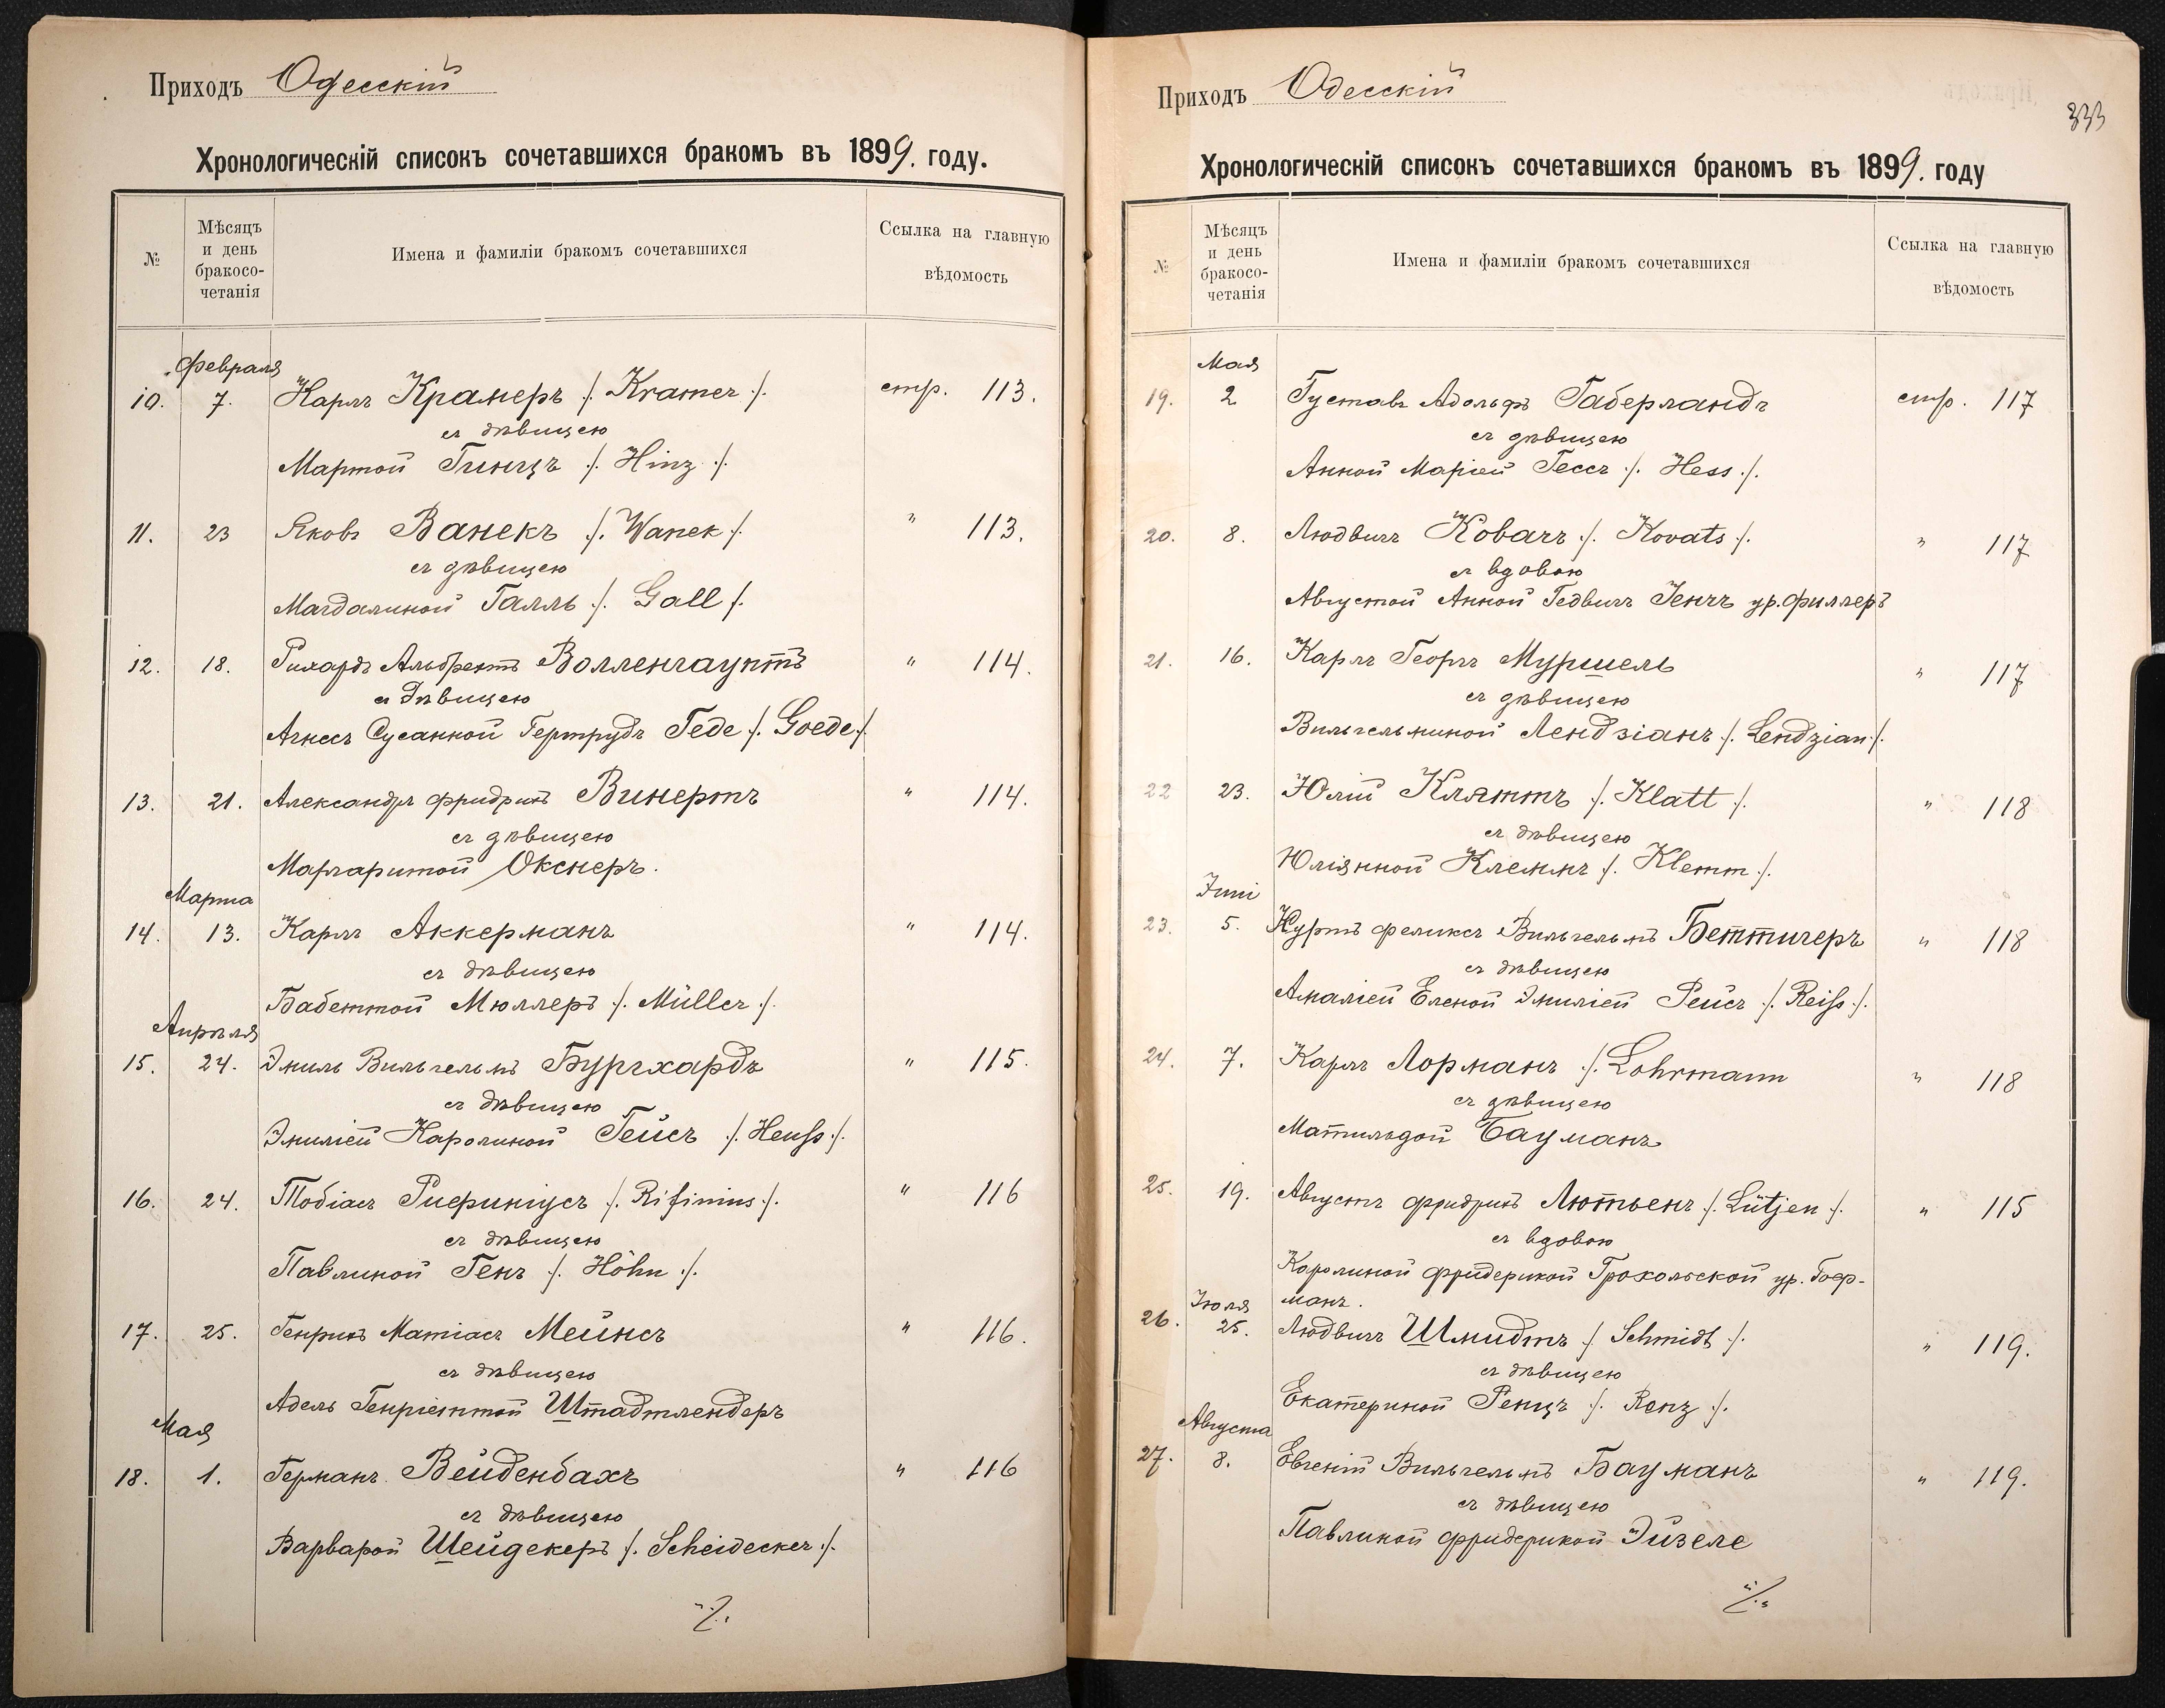 Приходъ Одесскій
Хронологическій списокъ сочетавшихся бракомъ въ 1899. году.
№
Мѣсяцъ
и день
бракосо-
четанія
Имена и фамиліи бракомъ сочетавшихся
Ссылка на главную
вѣдомость
Февраля
10. 7. Карлъ Крамеръ /. Kramer /. стр. 113.
съ дѣвицею
Мартой Гинцъ /. Hinz ./.
11. 23 Яковъ Ванекъ /. Wanek /. " 113.
съ дѣвицею
Магдалиной Галль ./. Gall /.
12. 18. Рихардъ Альбрехтъ Волленгауптъ " 114.
съ дѣвицею
Агнесъ Сусанной Гертрудъ Геде /. Goede /.
13. 21. Александръ Фридрихъ Винертъ " 114.
съ дѣвицею
Маргаритой Окснеръ.
Марта
14. 13. Карлъ Аккерманъ " 114.
съ дѣвицею
Бабеттой Мюллеръ /. Müller /.
Апрѣля
15. 24. Эмиль Вильгельмъ Бургхардъ " 115.
съ дѣвицею
Эмиліей Каролиной Гейсъ ./. Heuß ./.
16. 24. Тобіасъ Рифиніусъ /. Rifinius /. " 116
съ дѣвицею
Павлиной Генъ /. Höhn /.
17. 25. Генрихъ Матіасъ Мейнсъ " 116.
съ дѣвицею
Адель Генріеттой Штадтлендеръ
Мая
18. 1. Германъ Вейденбахъ " 116
съ дѣвицею
Варварой Шейдекеръ /. Scheidecker ./.
./.
Приходъ Одесскій
333
Хронологическій списокъ сочетавшихся бракомъ въ 1899. году
№
Мѣсяцъ
и день
бракосо-
четанія
Имена и фамиліи бракомъ сочетавшихся
Ссылка на главную
вѣдомость
Мая
19. 2 Густавъ Адольфъ Габерландъ стр. 117
съ дѣвицею
Анной Маріей Гессъ /. Hess ./.
20. 8. Людвигъ Ковачъ /. Kovats /. " 117
съ вдовою
Августой Анной Гедвигъ Іенчъ ур. Филлеръ
21. 16. Карлъ Георгъ Муршель " 117
съ дѣвицею
Вильгельминой Лендзіанъ /. Lendzian /.
22 23. Юлій Кляттъ /. Klatt /. " 118
съ дѣвицею
Юліянной Клеммъ /. Klemm /.
Іюни
23. 5. Куртъ Феликсъ Вильгельмъ Беттигеръ " 118
съ дѣвицею
Амаліей Еленой Эмиліей Рейсъ /. Reiß ./.
24. 7. Карлъ Лорманъ ./. Lohrmann " 118
съ дѣвицею
Матильдой Бауманъ
25. 19. Августъ Фридрихъ Лютьенъ /. Lütjen /. " 115
съ вдовою
Каролиной Фридерикой Грохольской ур. Гоф-
манъ.
Іюля
26. 25. Людвигъ Шмидтъ /. Schmidt /. " 119.
съ дѣвицею
Екатериной Ренцъ /. Renz /.
Августа
27. 8. Евгеній Вильгельмъ Бауманъ " 119.
съ дѣвицею
Павлиной Фридерикой Эйзеле
./.